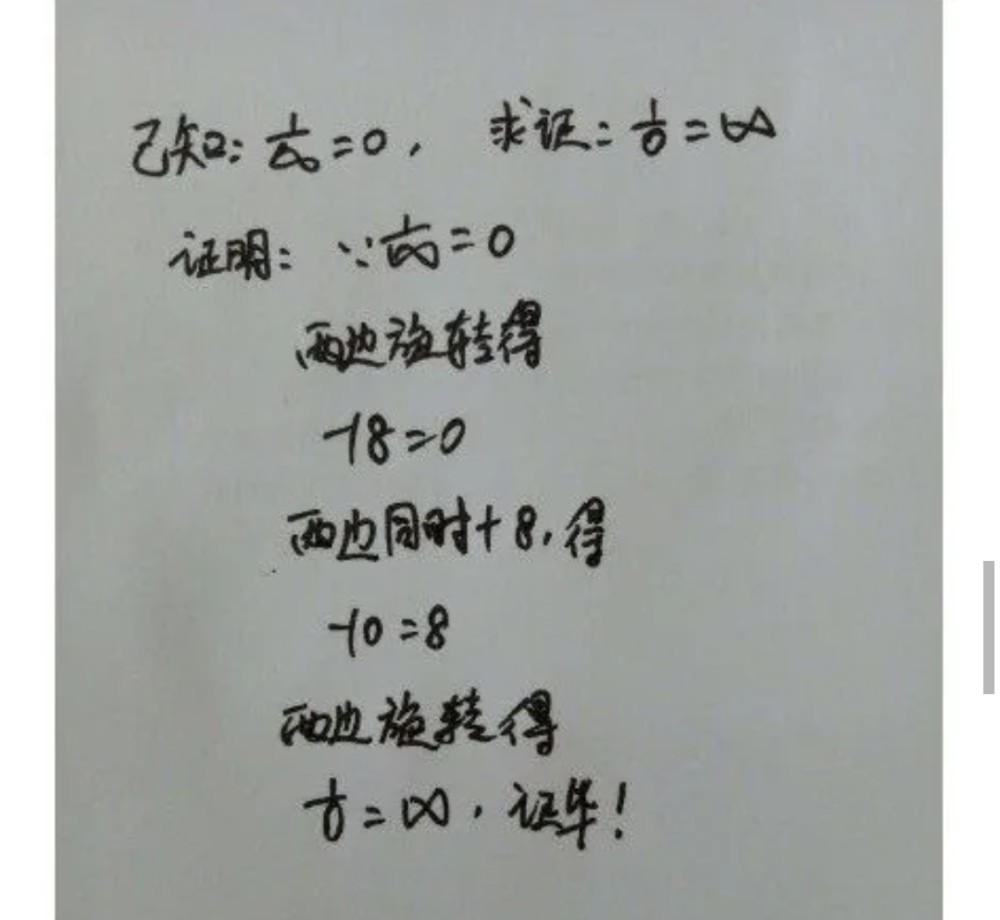 已知: 1/∞ = 0, 求证: 1/0 = ∞
证明: ∵ 1/∞ = 0
两边旋转得
-18 = 0
两边同时+8,得
-10 = 8
两边旋转得
1/0 = ∞. 证毕!